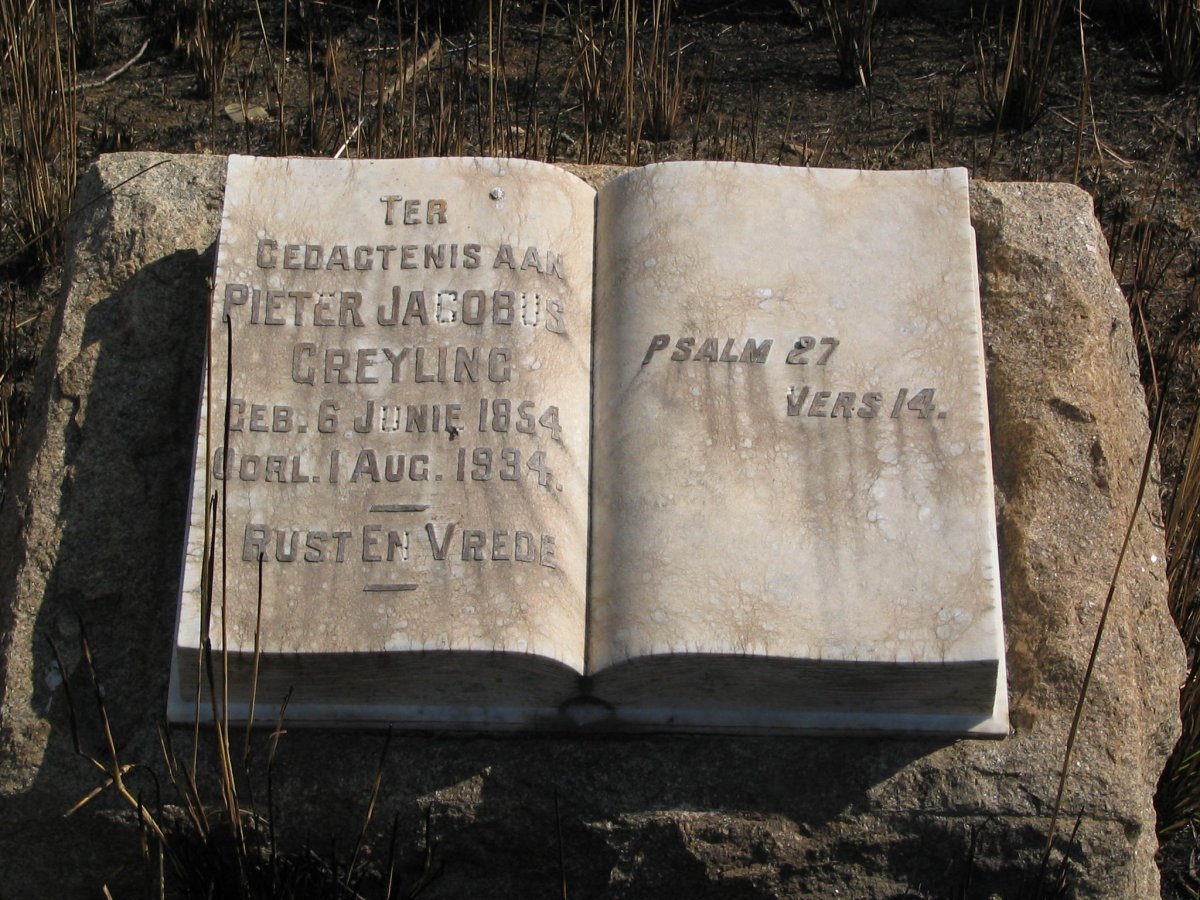 TER
GEDACTENIS AAN
PIETER JACOBUS
GREYLING
GEB. 6 JUNIE 1854
OORL. 1 AUG. 1934.
RUST EN VREDE
PSALM 27
VERS 14.